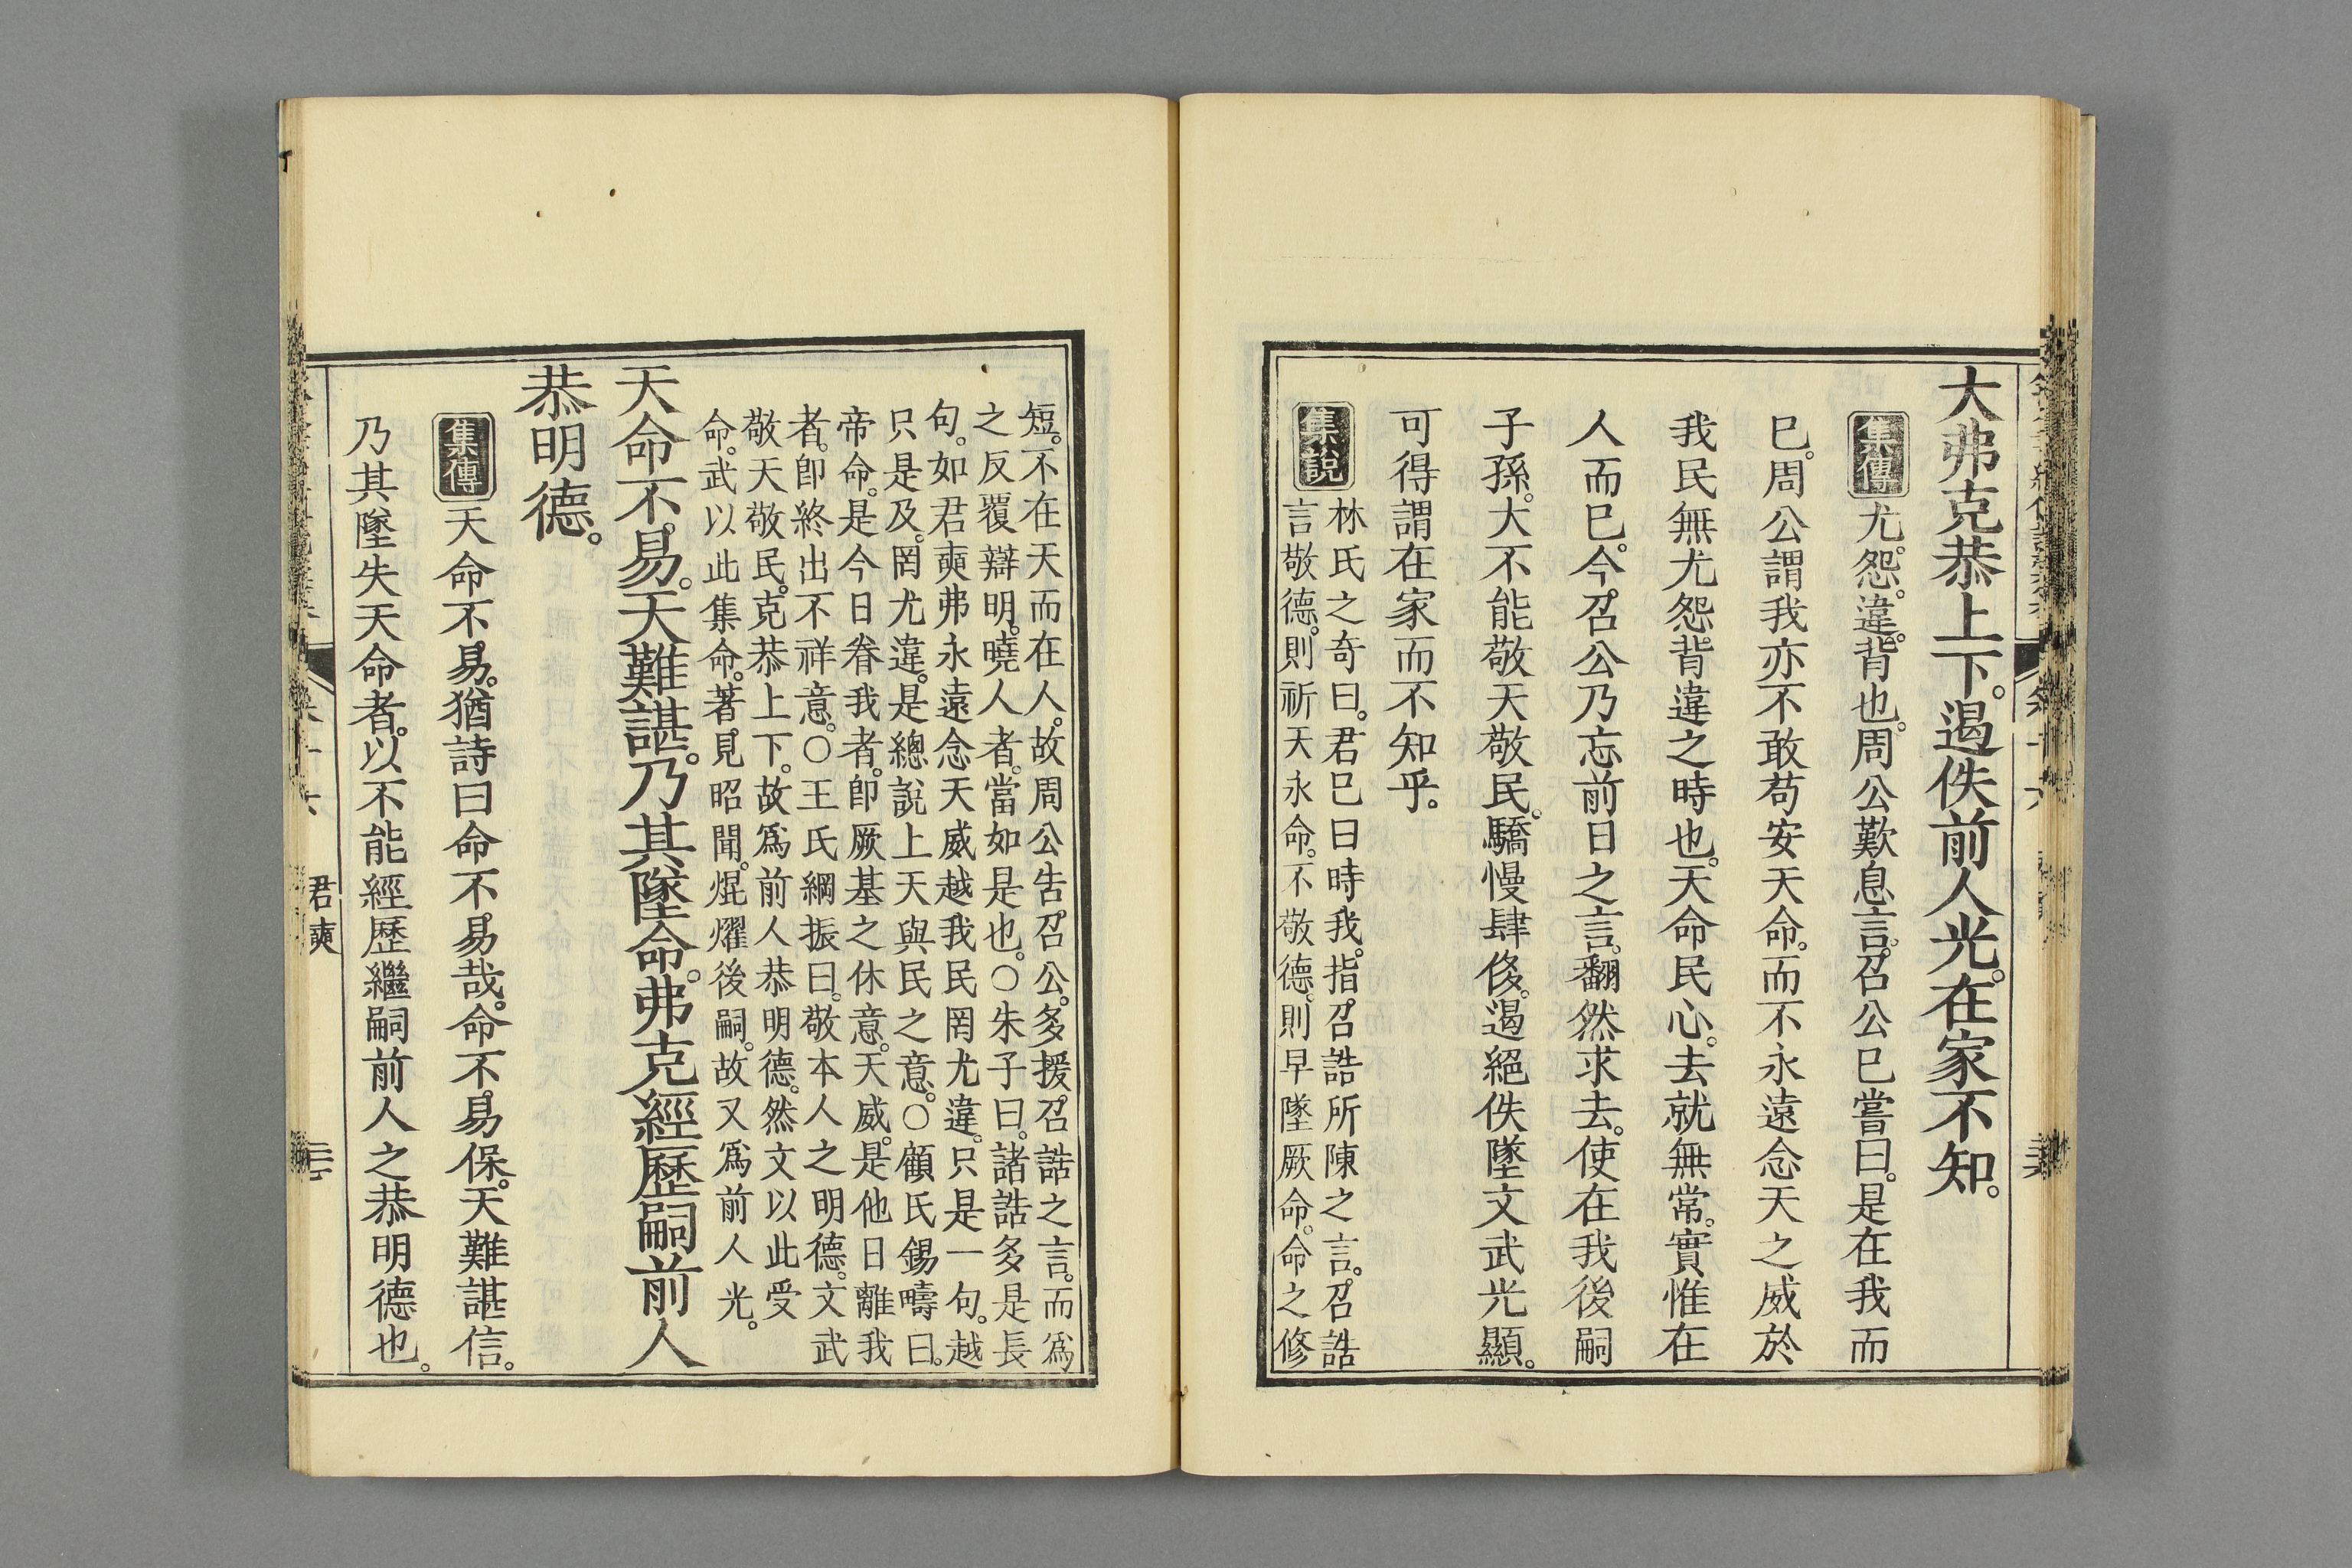 大弗克恭上下。遏佚前人光。在家不知。
集傳 尤。怨。違。背也。周公歎息言。召公已嘗曰。是在我而
已。周公謂我亦不敢苟安天命。而不永遠念天之威於
我民無尤怨背違之時也。天命民心。去就無常。實惟在
人而已。今召公乃忘前日之言。翻然求去。使在我後嗣
子孫。大不能敬天敬民。驕慢肆侈。遏絕佚墜文武光顯。
可得謂在家而不知乎。
集說 林氏之奇曰。君已曰時我。指召誥所陳之言。召誥
言敬德。則祈天永命。不敬德。則早墜厥命。命之修
短。不在天而在人。故周公告召公。多援召誥之言。而爲
之反覆辯明。曉人者。當如是也。○朱子曰。諸誥多是長
句。如君奭弗永遠念天威越我民罔尤違。只是一句。越
只是及。罔尤違。是總說上天與民之意。○顧氏錫疇曰。
帝命。是今日眷我者。卽厥基之休意。天威。是他日離我
者。卽終出不祥意。○王氏綱振曰。敬本人之明德。文武
敬天敬民。克恭上下。故爲前人恭明德。然文以此受
命。武以此集命。著見昭聞。焜燿後嗣。故又爲前人光。
天命不易。天難諶。乃其墜命。弗克經歷嗣前人
恭明德。
集傳 天命不易。猶詩曰命不易哉。命不易保。天難諶信。
乃其墜失天命者。以不能經歷繼嗣前人之恭明德也。
君奭